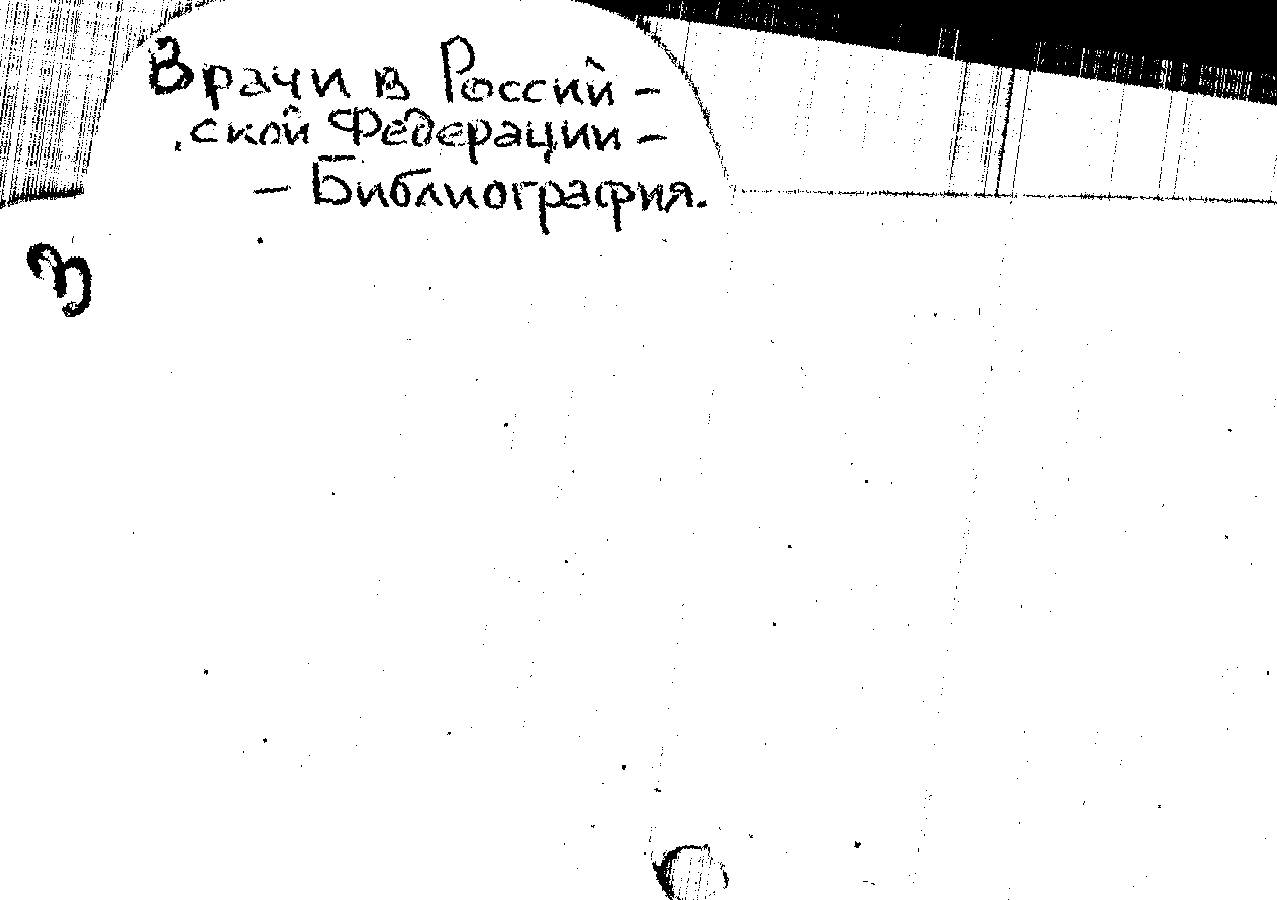 Врачи в Россий-
ской Федерации -
- Библиография.